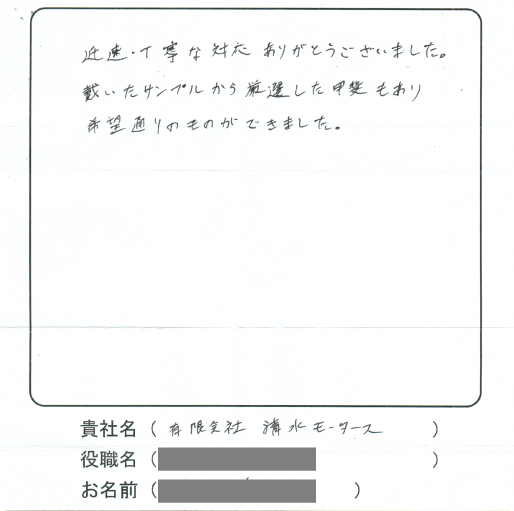 迅速・丁寧な対応ありがとうございました。
戴いたサンプルから厳選した甲斐もあり
希望通りのものができました。
貴社名（有限会社 清水モータース）
役職名（ ）
お名前（ ）